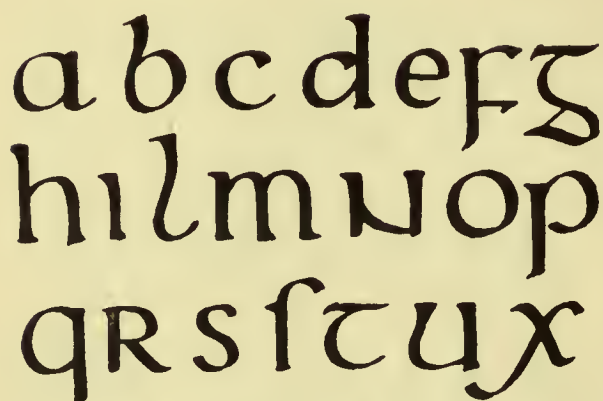 a b c d e f g
h ı l m n o p
q R s ſ t u x